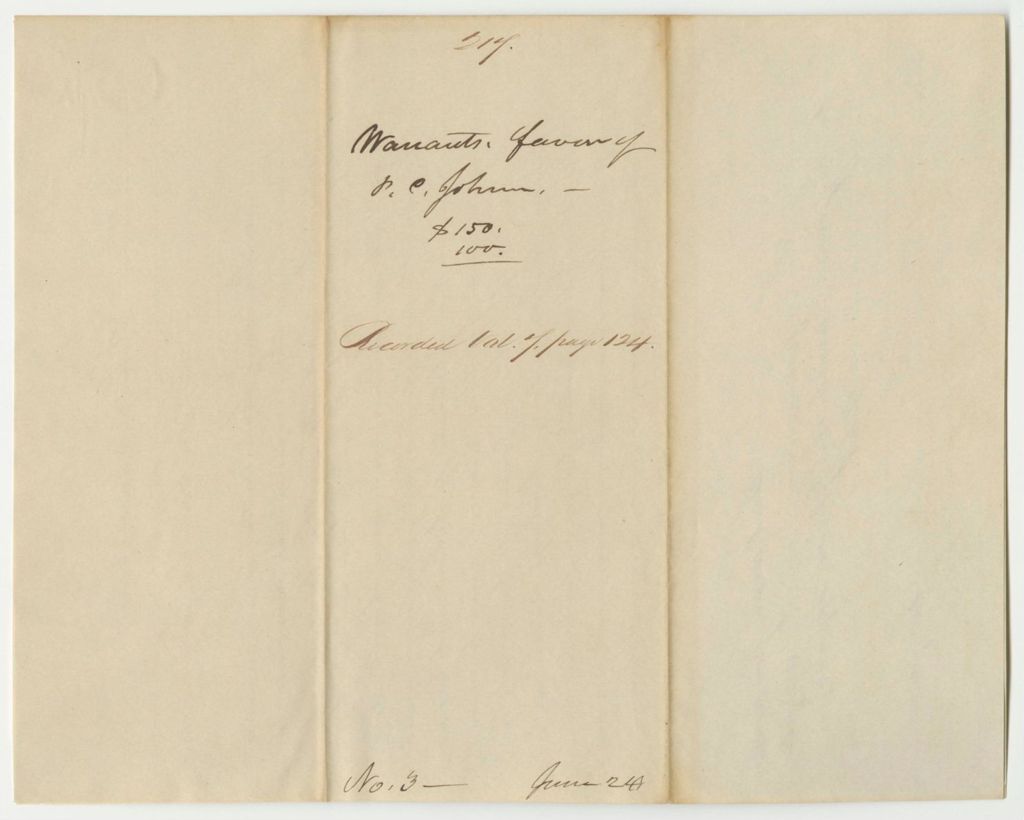 217.
Warrants. favor of
P. C. Johnson. —
$150.
100.
Recorded Vol. 7. page 124.
No. 3 — June 24